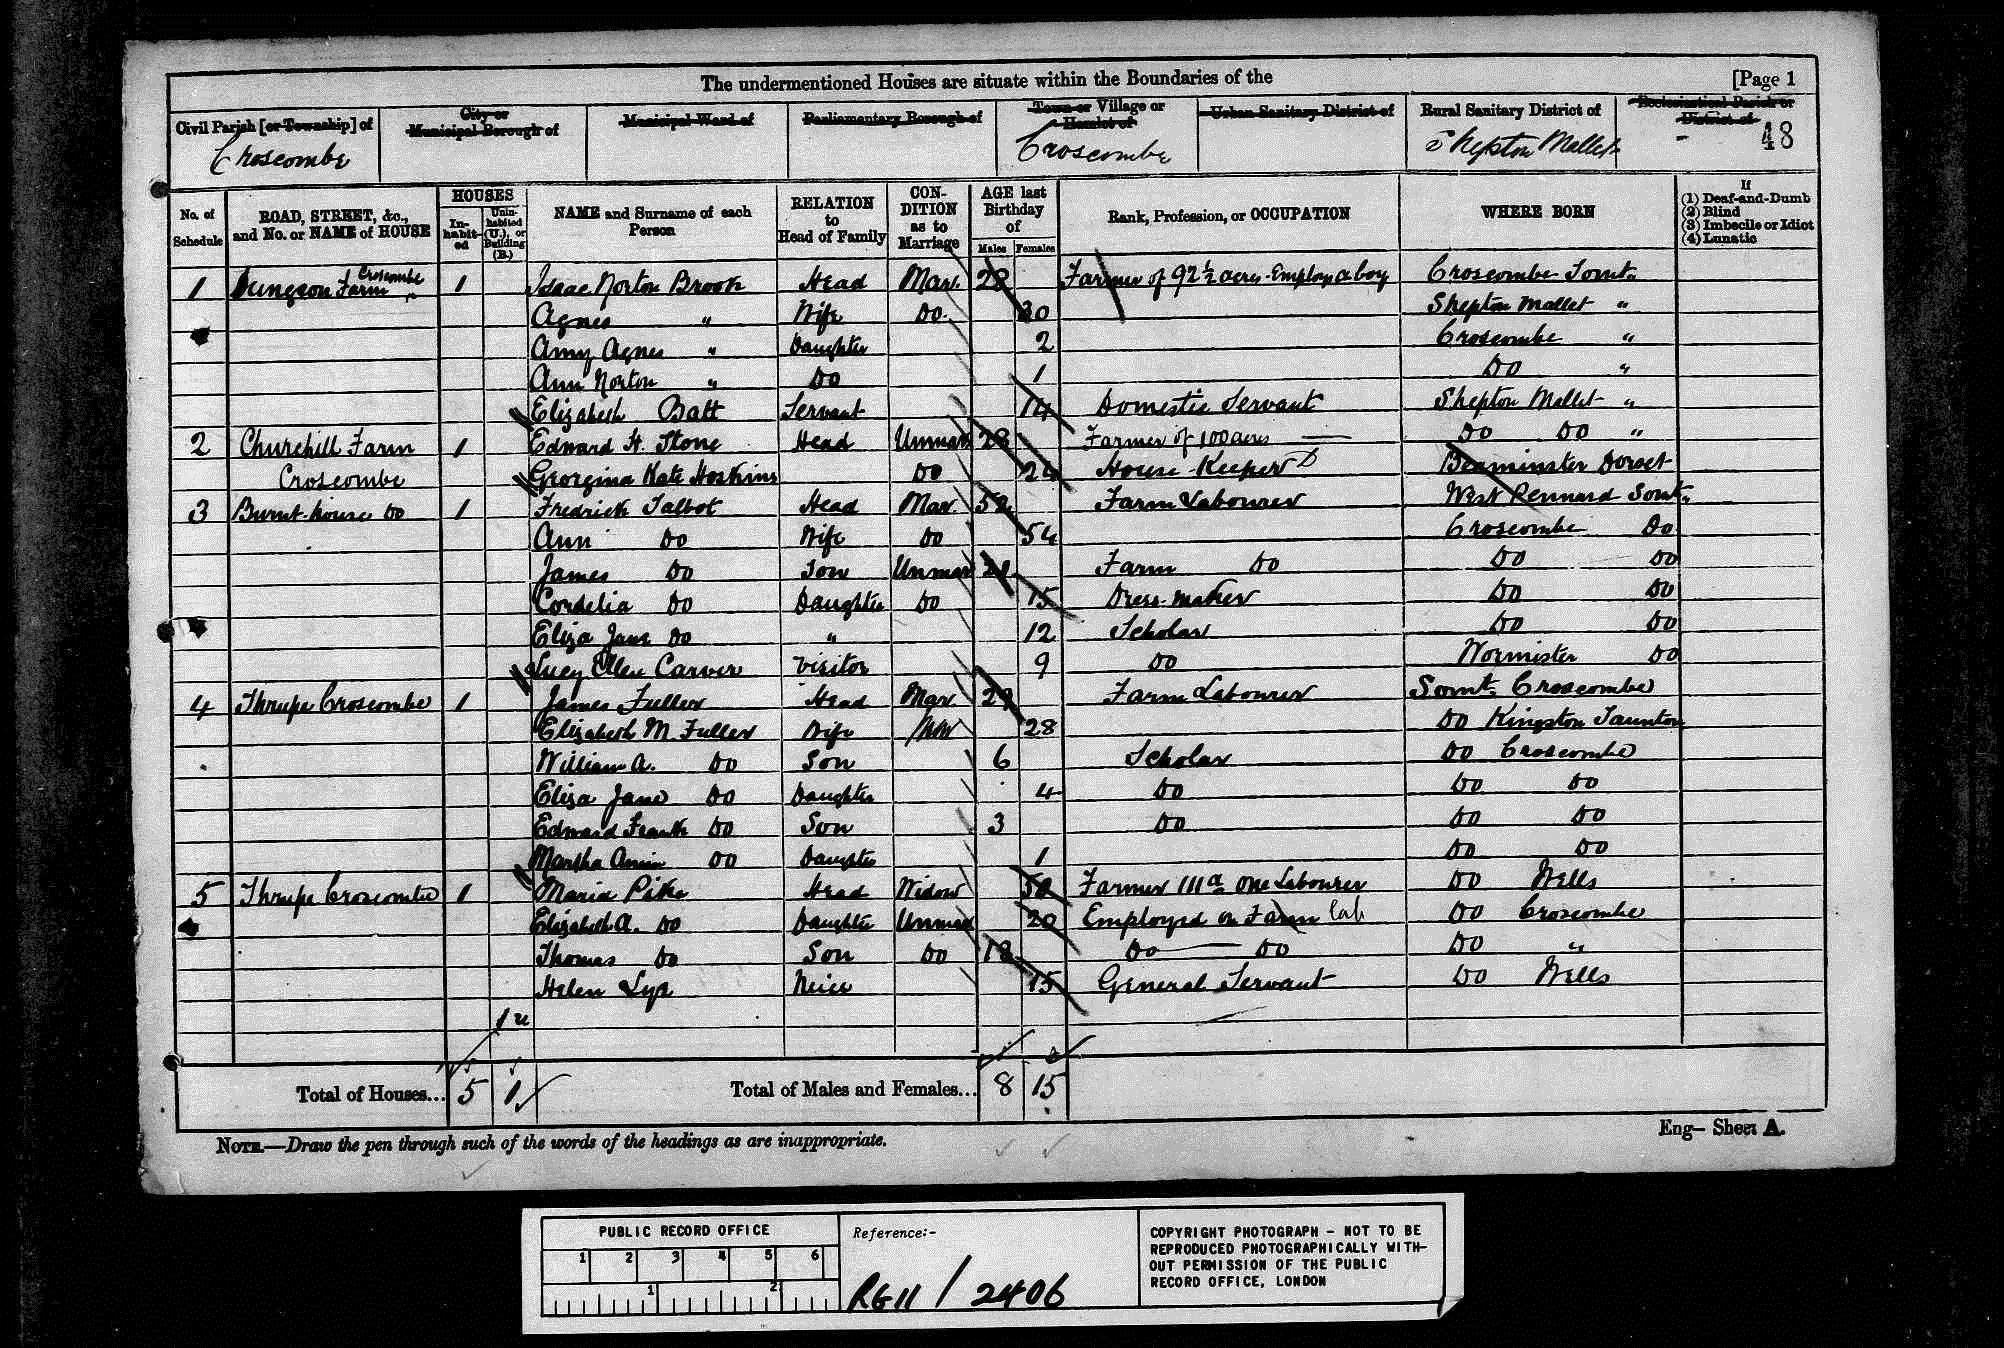 The undermentioned Houses are situate within the Boundaries of the [Page 1
Civil Parish [or Township] of City or Municipal Borough of Municipal Ward of Parliamentary Borough of Town or Village or Hamlet of Urban Sanitary District of Rural Sanitary District of Ecclesiastical Parish or District of
Croscombe Croscombe Shepton Mallet - 48
No. of Schedule ROAD, STREET, &c., and No. or NAME of HOUSE HOUSES Inhabited Uninhabited (U.), or Building (B.) NAME and Surname of each Person RELATION to Head of Family CONDITION as to Marriage AGE last Birthday of Males Females Rank, Profession, or OCCUPATION WHERE BORN If (1) Deaf-and-Dumb (2) Blind (3) Imbecile or Idiot (4) Lunatic
1 Dungeon Farm Croscombe 1 Isaac Norton Brook Head Mar. 28 Farmer of 92½ acres Employ a boy Croscombe Somt.
Agnes " Wife Do. 30 Shepton Mallet "
Amy Agnes " Daughter 2 Croscombe "
Ann Norton " Do 1 Do "
Elizabeth Batt Servant 14 Domestic Servant Shepton Mallet "
2 Churchill Farm 1 Edward H. Stone Head Unmar 28 Farmer of 100 acres Do Do "
Croscombe Georgina Kate Hoskins Do 24 House-Keeper D Beaminster Dorset
3 Burnt-house Do 1 Fredrick Talbot Head Mar. 52 Farm Labourer West Pennard Somt.
Ann Do Wife Do 54 Croscombe Do
James Do Son Unmar 21 Farm Do Do Do
Cordelia Do Daughter Do 15 Dress-maker Do Do
Eliza Jane Do " 12 Scholar Do Do
Lucy Ellen Carver Visitor 9 Do Wormister Do
4 Thrupe Croscombe 1 James Fuller Head Mar. 29 Farm Labourer Somt. Croscombe
Elizabeth M. Fuller Wife Mar 28 Do Kingston Taunton
William A. Do Son 6 Scholar Do Croscombe
Eliza Jane Do Daughter 4 Do Do Do
Edward Frank Do Son 3 Do Do Do
Martha Annie Do Daughter 1 Do Do
5 Thrupe Croscombe 1 Maria Pike Head Widow 50 Farmer 111 a One Labourer Do Wells
Elizabeth A. Do Daughter Unmar 20 Employed on Farm lab Do Croscombe
Thomas Do Son Do 18 Do Do Do "
Helen Lye Neice 15 General Servant Do Wells
1 u
Total of Houses... 5 1 Total of Males and Females... 8 15
NOTE.—Draw the pen through such of the words of the headings as are inappropriate. Eng— Sheet A.
PUBLIC RECORD OFFICE
1 2 3 4 5 6
1 2
Reference:-
RG11 / 2406
COPYRIGHT PHOTOGRAPH – NOT TO BE
REPRODUCED PHOTOGRAPHICALLY WITH-
OUT PERMISSION OF THE PUBLIC
RECORD OFFICE, LONDON